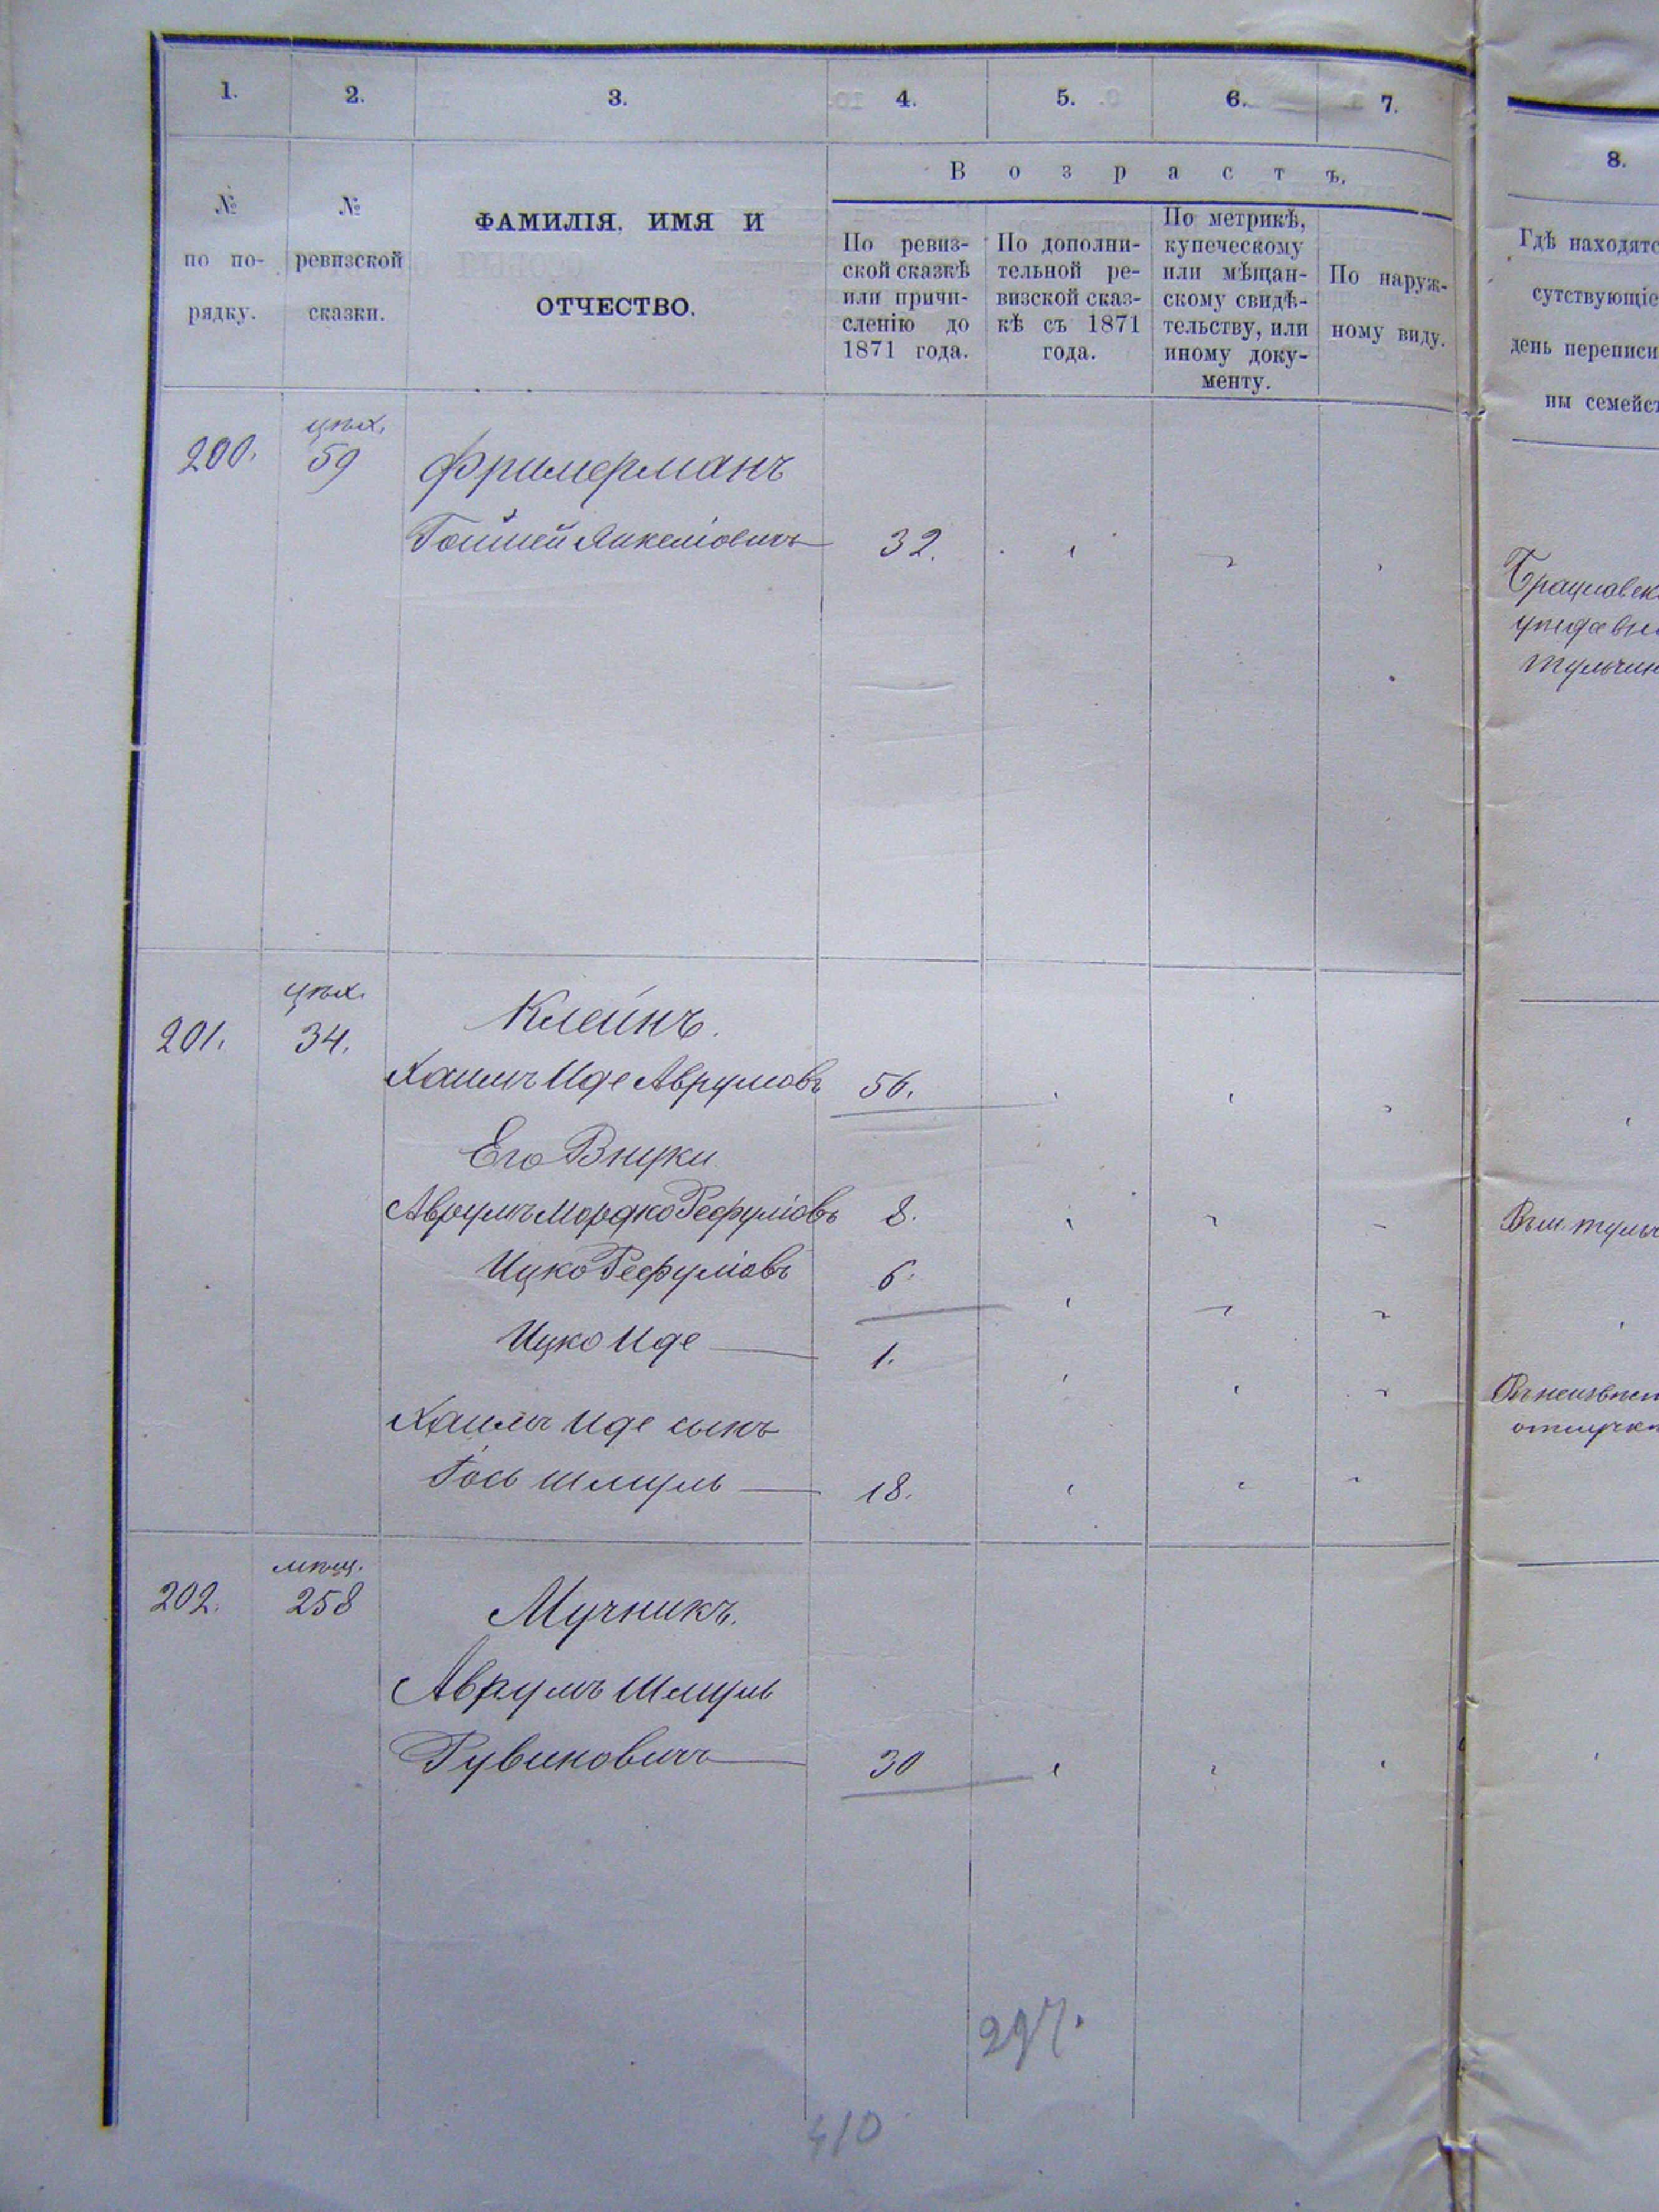 1. 2. 3. 4. 5. 6. 7.
В о з р а с т ъ.
№ по по-рядку.
№ ревизской сказки.
ФАМИЛІЯ, ИМЯ И
ОТЧЕСТВО.
По ревиз-
ской сказкѣ
или причи-
сленію до
1871 года.
По дополни-
тельной ре-
визской сказ-
кѣ съ 1871
года.
По метрикѣ,
купеческому
или мѣщан-
скому свидѣ-
тельству, или
иному доку-
менту.
По наруж-
ному виду.
8.
Гдѣ находятс
сутствующіе
день переписи
ны семейст
цех.
200. 59 Фримерманъ
Янкелiовичъ 32.
Брацлавск
уѣзда
Тульчин
цех.
201. 34. Клейнъ.
Хаимъ Иде Аврумовъ 56.
Его Внуки
Аврумъ Мордко Рефуліовъ 8.
Ицко Рефуліовъ 6.
Ицко Иде 1.
Хаимъ Иде сынъ
Іось Шмуль 18.
Въ м. Тульч
отлучк
мѣщ.
202. 258 Мучникъ.
Аврумъ Шмуль
Рувиновичъ 30
297.
410